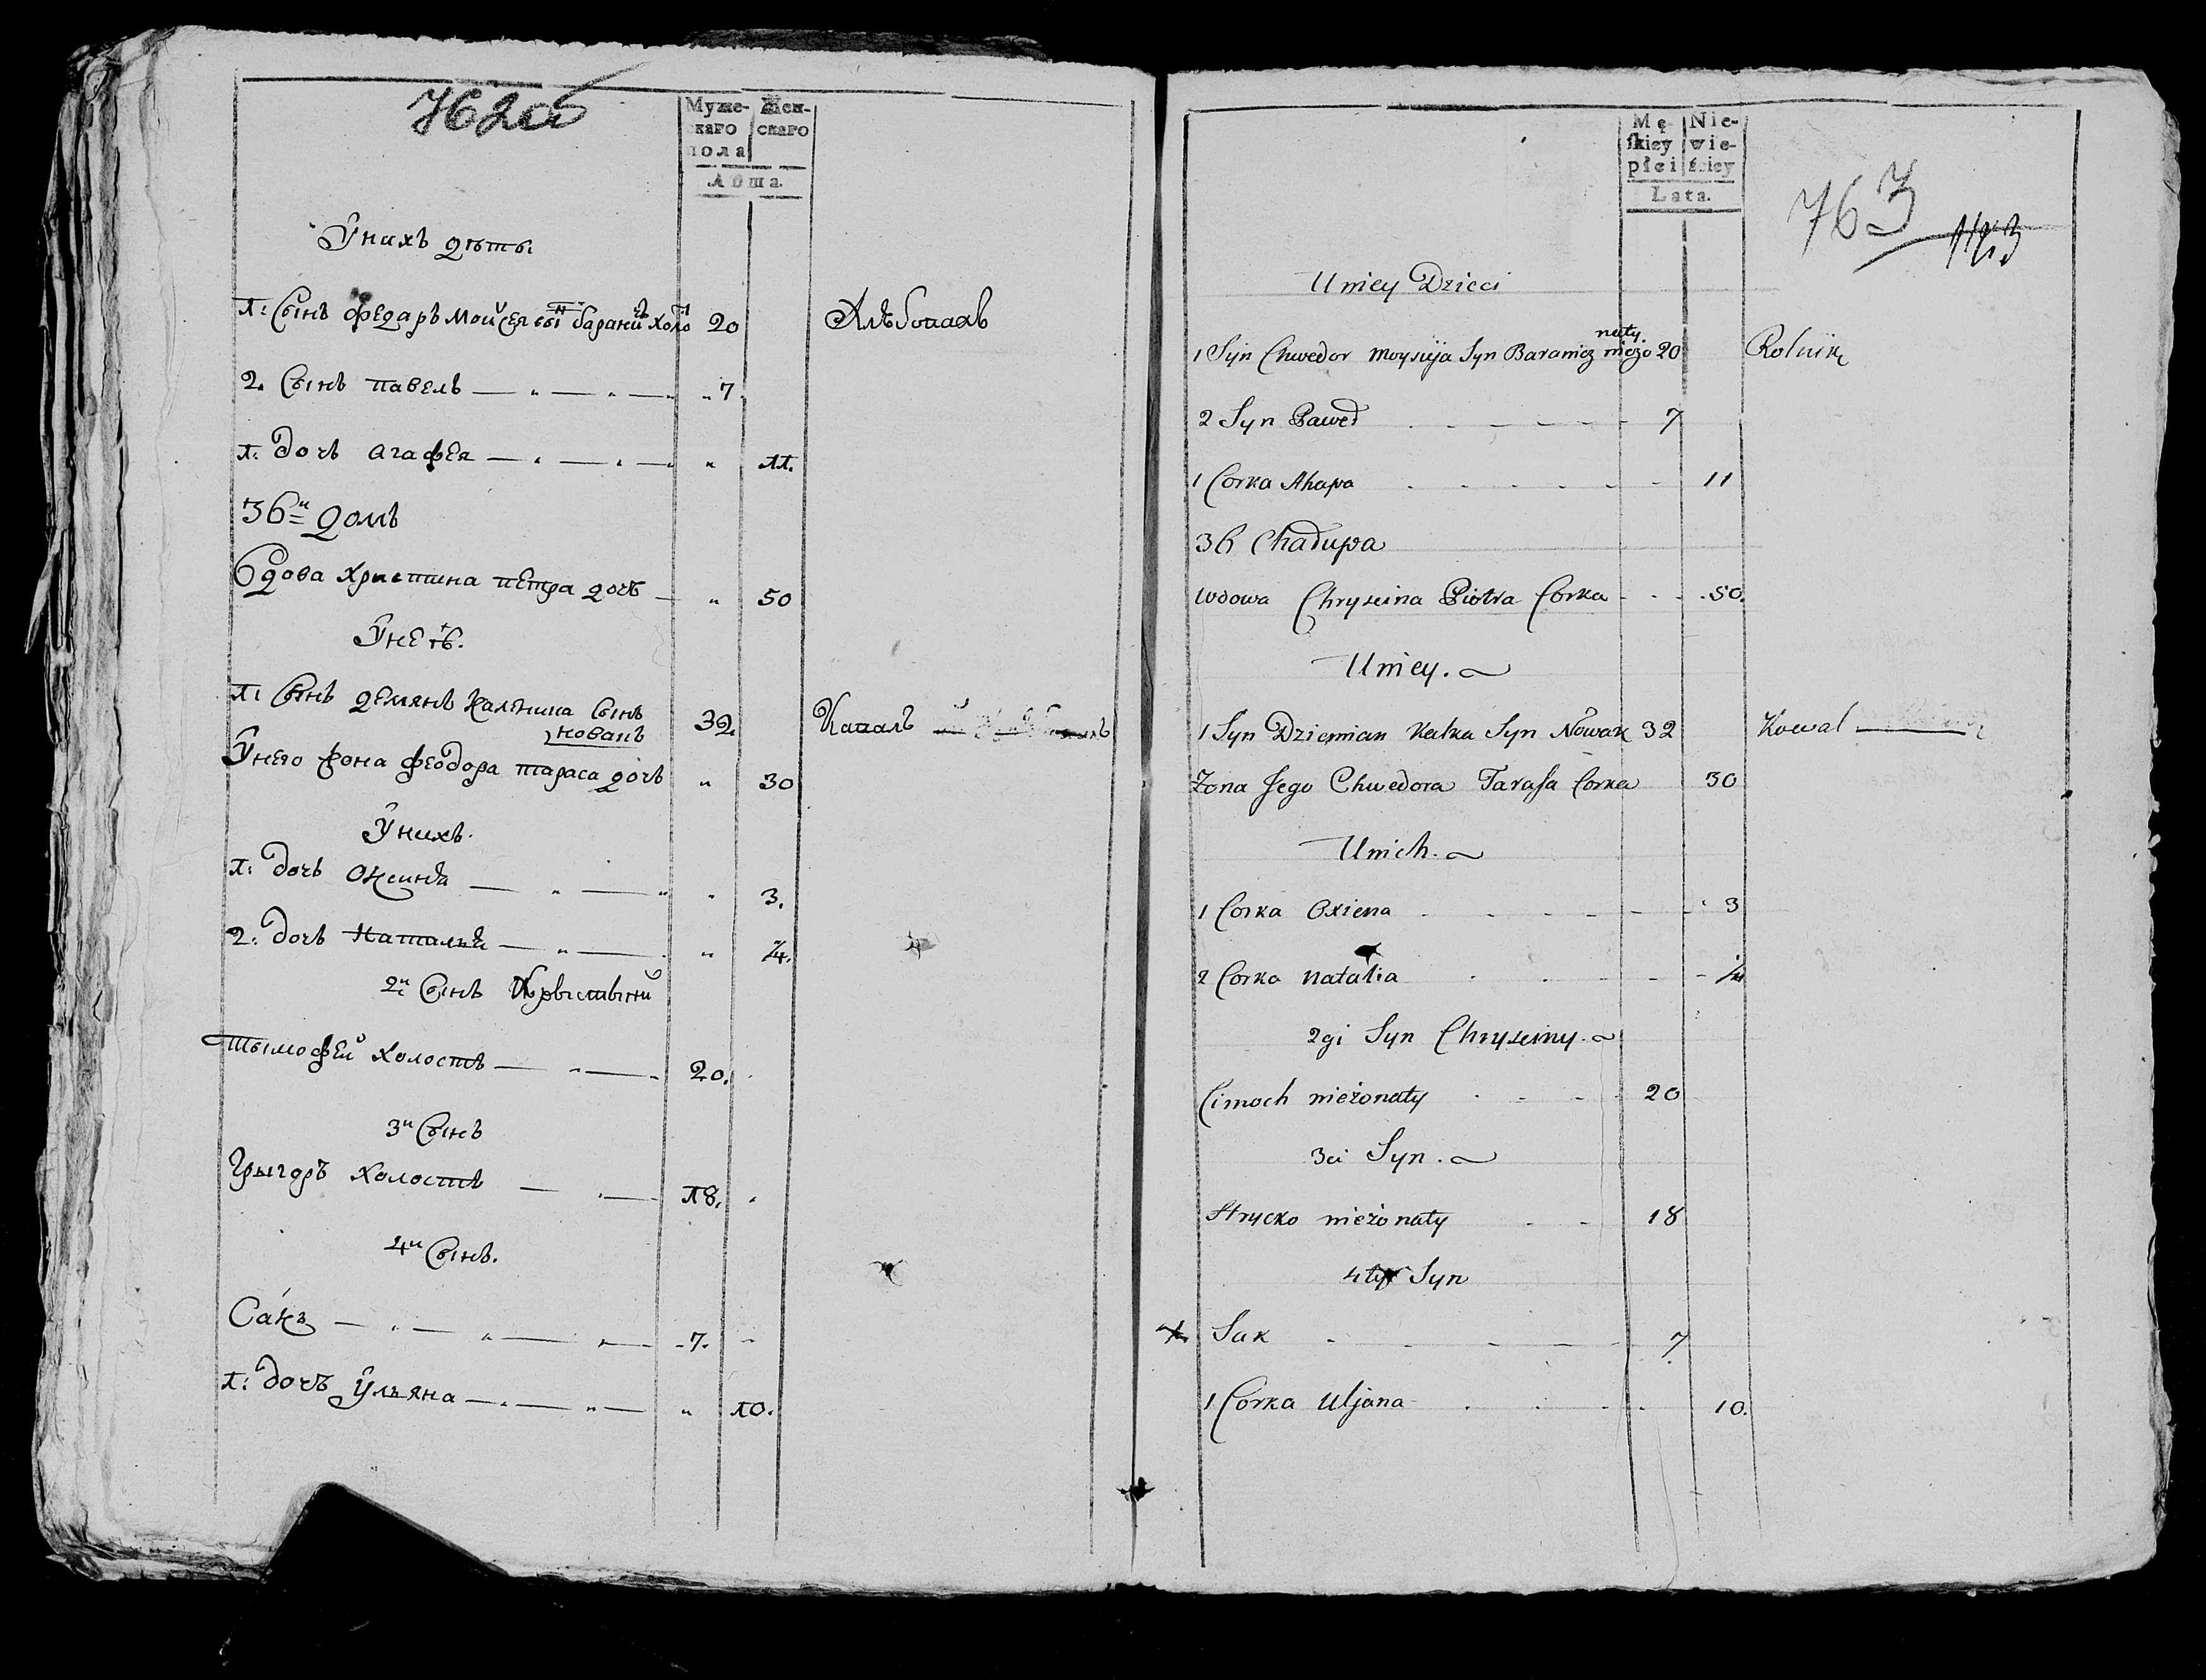 762об
Муже-
каго
пола
Жен-
скаго
Лѣта.
У нихъ дѣты.
1: Сынъ Федаръ Мойсея сы̅н баранић холо 20 Хлѣбопахъ
2. Сынъ павелъ — „ — „ — „ „ 7.
1. Дочь агафея — „ — „ — „ „ 11.
36й домъ
Вдова Христина петра дочь — „ 50
У неѣ.
1: Сынъ демянъ Калѣнина Сынъ 32. Коваль
новакъ
У него жона феодора тараса дочь „ 30
У нихъ.
1: Дочь Оксинѣа — „ — „ „ 3.
2: Дочь Наталья — „ — „ 1/4.
2й Сынъ Хрыстыни
тымофей холостъ — „ — „ 20.
3й Сынъ
Грыгоръ холостъ — „ — 18. „
4й Сынъ.
Сакъ — „ — „ — „ — „ 7. „
1: Дочъ ульяна — „ — „ — „ 10.
Mę-
skiey
płci
Nie-
wie-
ściey
Lata.
763
U niey Dzieci
naty.
1 Syn Chwedor Moysija Syn Baranicz nieżo 20 Rolnik
2 Syn Paweł 7
1 Corka Ahapa 11
36 Chałupa
Wdowa Chryscina Piotra Corka 50.
U niey.
1 Syn Dziemian Kalka Syn Nowak 32 Kowal
Zona Jego Chwedora Tarasa Corka 30
U nich.
1 Corka Oxiena 3
2 Corka Natalia 1/4
2gi Syn Chrysciny.
Cimoch nieżonaty 20
3ci Syn.
Hrycko nieżonaty 18
4ty Syn
Sak 7
1 Corka Uljana 10.